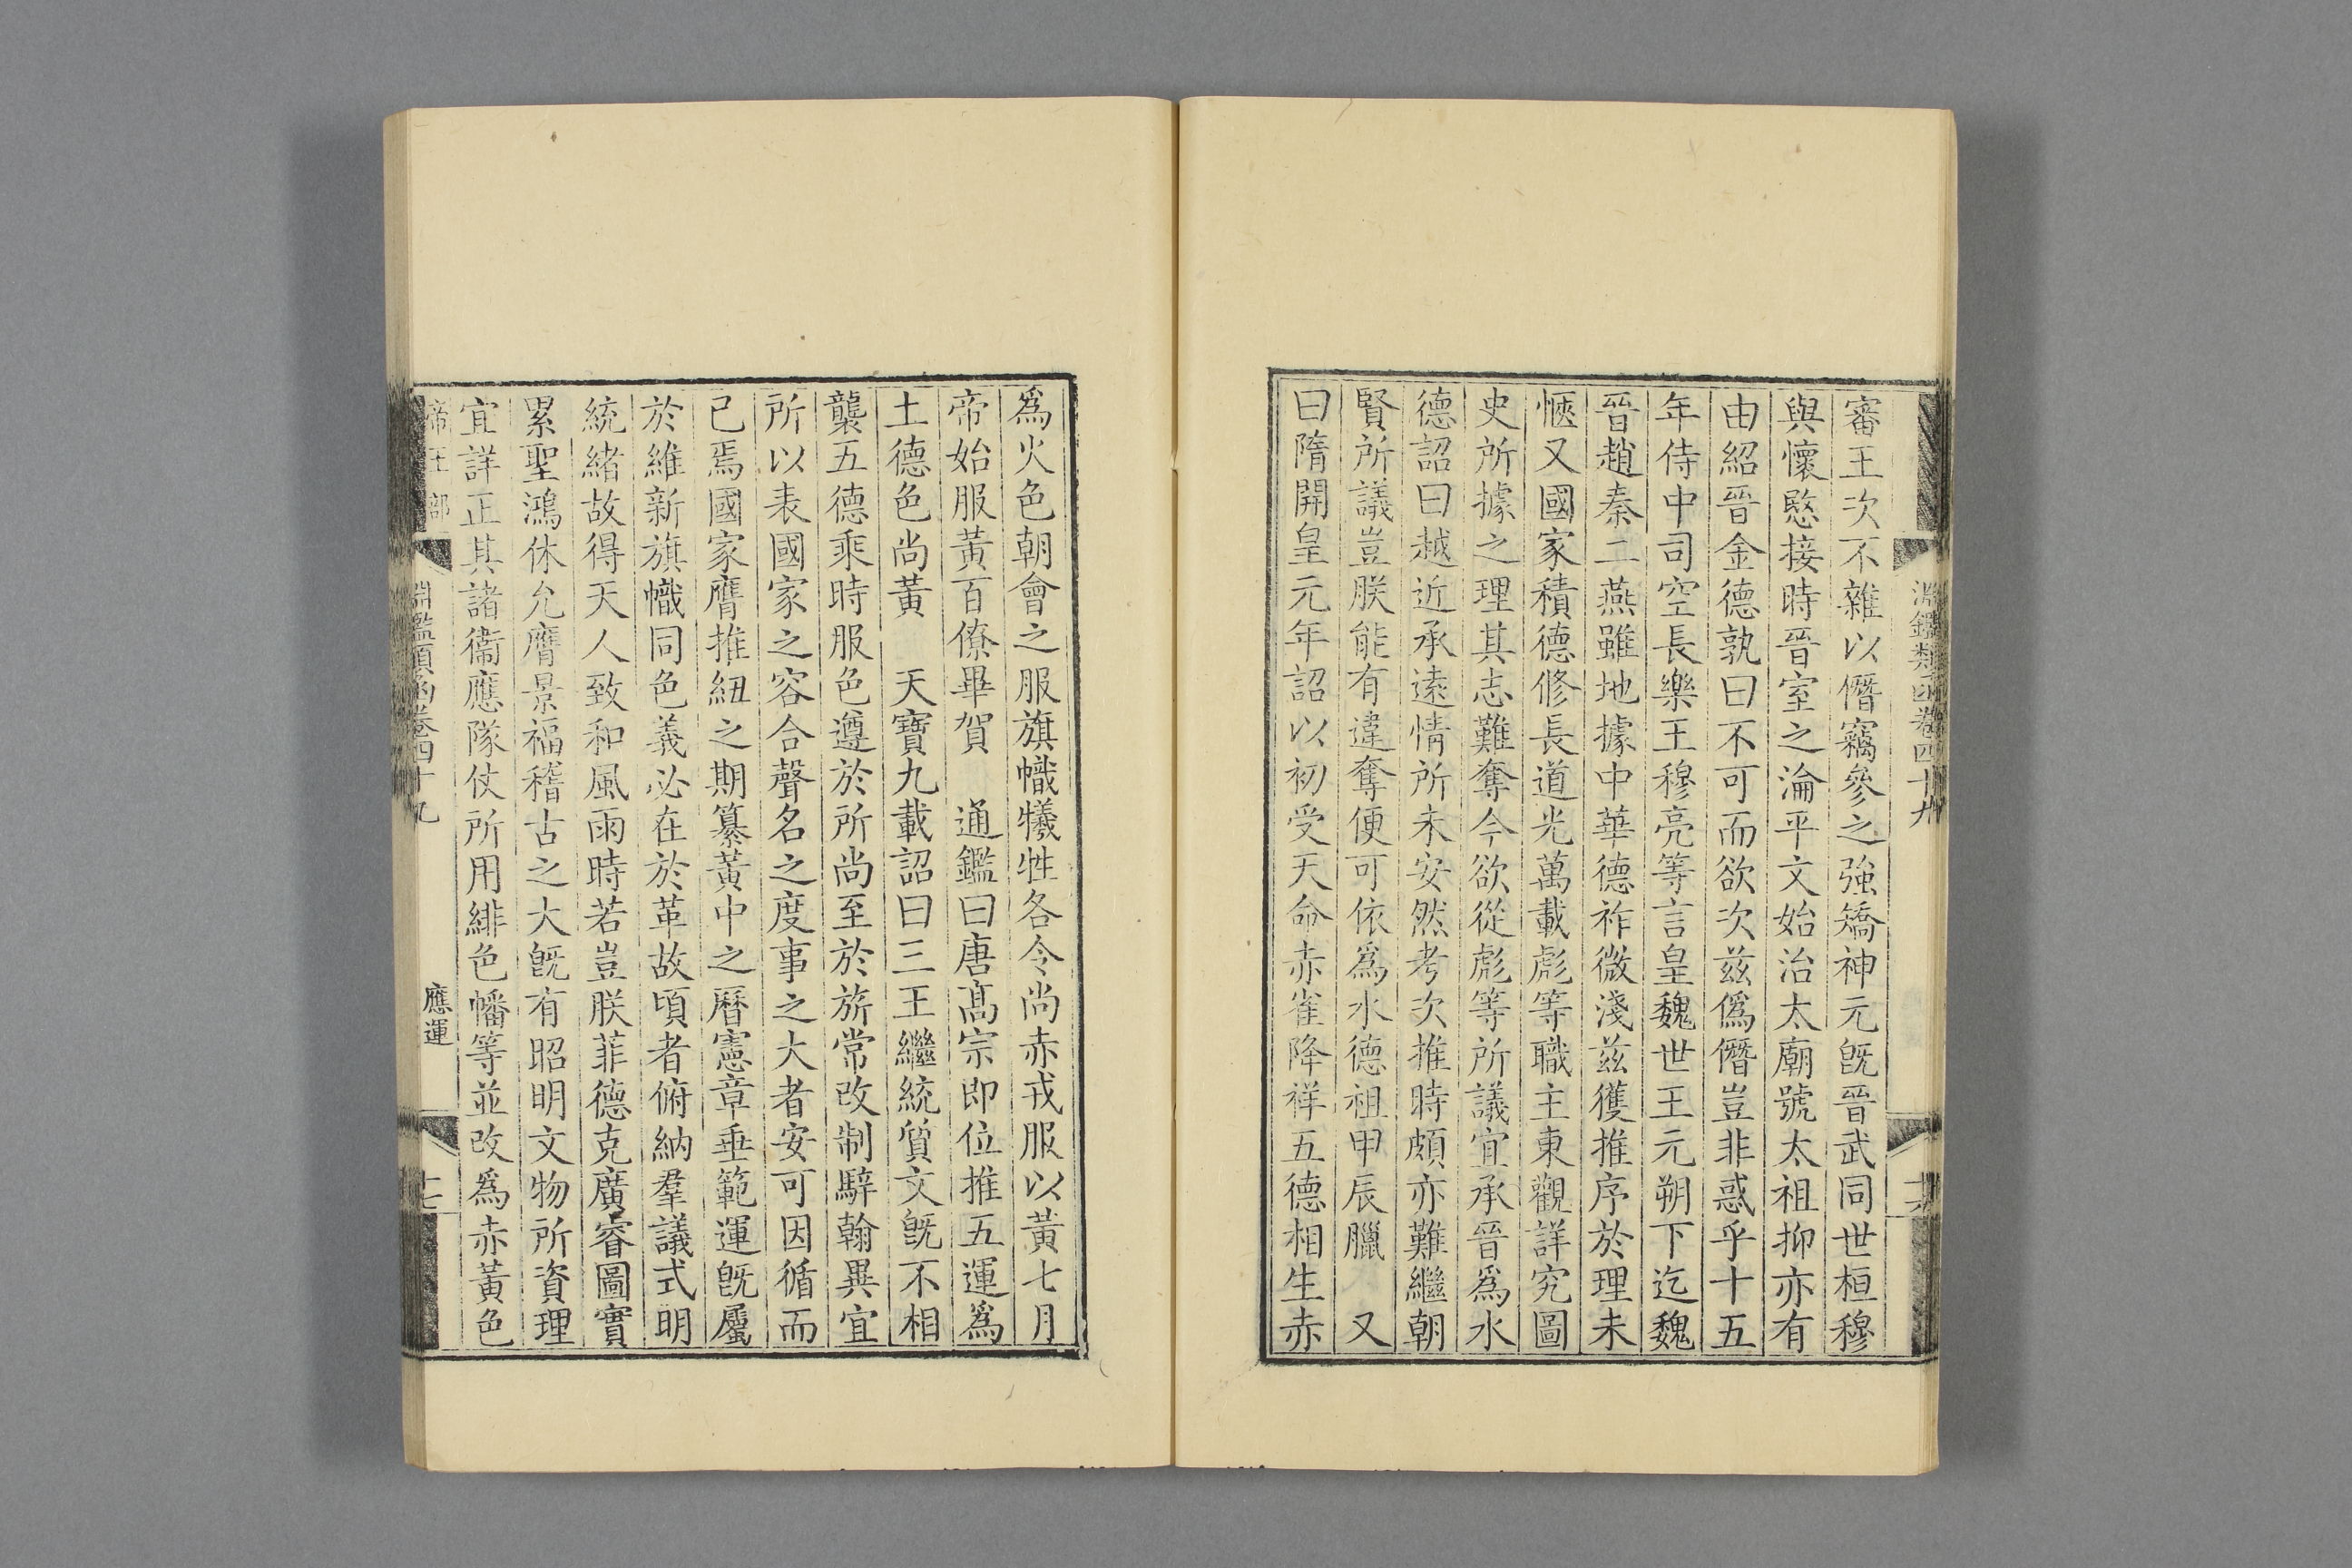 淵鑑類函卷四十九
審王次不雜以僭竊參之強矯神元旣晉武同世桓穆
與懷愍接時晉室之淪平文始治太廟號太祖抑亦有
由紹晉金德孰曰不可而欲次茲僞僭豈非惑乎十五
年侍中司空長樂王穆亮等言皇魏世王元朔下迄魏
晉趙秦二燕雖地據中華德祚微淺茲獲推序於理未
愜又國家積德修長道光萬載彪等職主東觀詳究圖
史所據之理其志難奪今欲從彪等所議宜承晉爲水
德詔曰越近承遠情所未安然考次推時頗亦難繼朝
賢所議豈朕能有違奪便可依爲水德祖申辰臘 又
曰隋開皇元年詔以初受天命赤雀降祥五德相生赤
爲火色朝會之服旗幟犧牲各令尚赤戎服以黃七月
帝始服黃百僚畢賀 通鑑曰唐髙宗即位推五運爲
土德色尚黃 天寶九載詔曰三王繼統質文旣不相
襲五德乘時服色遵於所尚至於旂常改制騂翰異宜
所以表國家之容合聲名之度事之大者安可因循而
已焉國家膺推紐之期纂黃中之曆憲章垂範運旣屬
於維新旗幟同色義必在於革故頃者俯納羣議式明
統緒故得天人致和風雨時若豈朕菲德克廣睿圖實
累聖鴻休允膺景福稽古之大旣有昭明文物所資理
宜詳正其諸衞應隊仗所用緋色幡等並改爲赤黃色
帝王部
淵鑑類函卷四十九
應運
十七